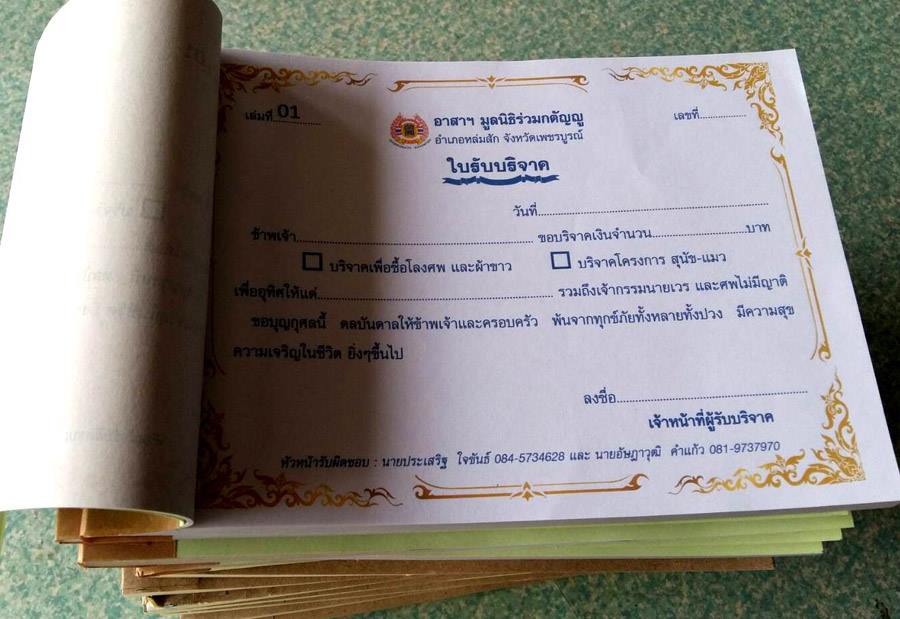 เล่มที่ 01
อาสาฯ มูลนิธิร่วมกตัญญู
เลขที่..............
อำเภอหล่มสัก จังหวัดเพชรบูรณ์
ใบรับบริจาค
วันที่..............................................................
ข้าพเจ้า.............................................................. ขอบริจาคเงินจำนวน.........................บาท
☐ บริจาคเพื่อซื้อโลงศพ และผ้าขาว ☐ บริจาคโครงการ สุนัข-แมว
เพื่ออุทิศให้แด่.............................................................. รวมถึงเจ้ากรรมนายเวร และศพไม่มีญาติ
ขอบุญกุศลนี้ ดลบันดาลให้ข้าพเจ้าและครอบครัว พ้นจากทุกข์ภัยทั้งหลายทั้งปวง มีความสุข
ความเจริญในชีวิต ยิ่งๆขึ้นไป
ลงชื่อ..................................................
เจ้าหน้าที่ผู้รับบริจาค
หัวหน้ารับผิดชอบ : นายประเสริฐ ใจขันธ์ 084-5734628 และ นายอัษฎาวุฒิ คำแก้ว 081-9737970